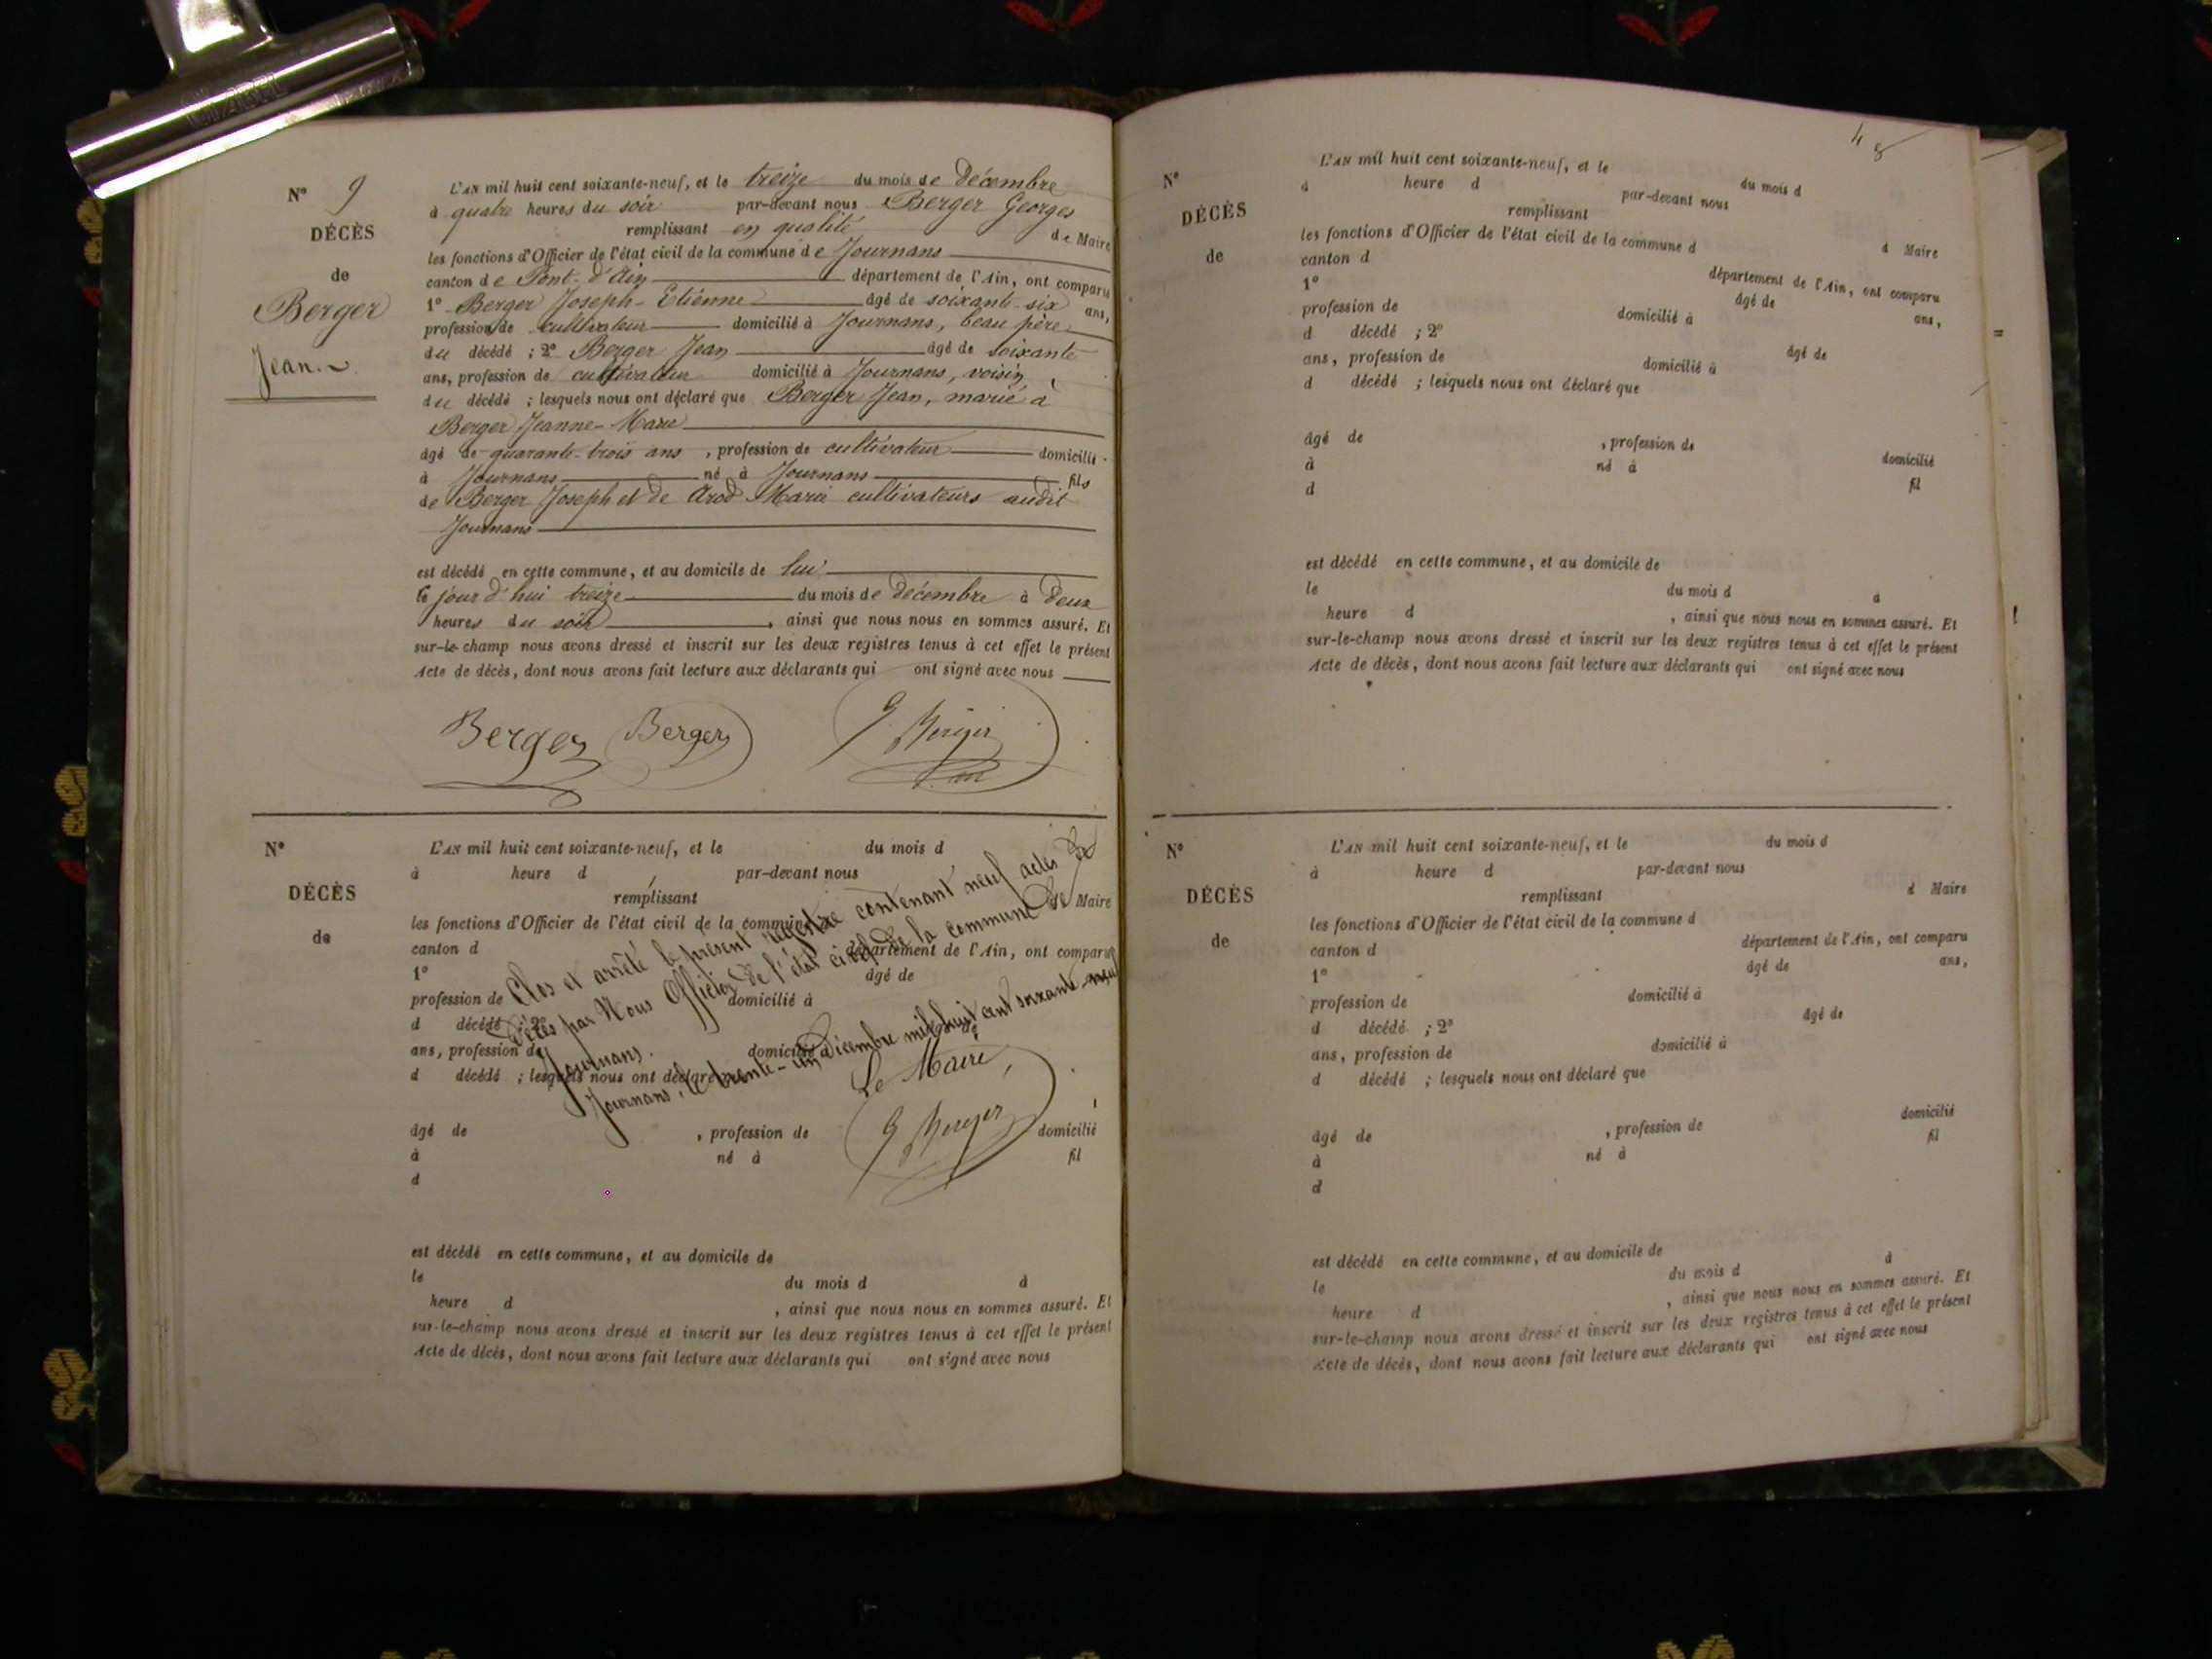 N° 9
DÉCÈS
de
Berger
Jean.
L'AN mil huit cent soixante-neuf, et le treize du mois de Décembre
à quatre heures du soir par-devant nous Berger Georges
remplissant en qualité de Maire
les fonctions d'Officier de l'état civil de la commune de Journans
canton de Pont-d'Ain département de l'Ain, ont comparu
1° Berger Joseph-Etienne âgé de soixante-six ans,
profession de cultivateur domicilié à Journans, beau père
du décédé ; 2° Berger Jean âgé de soixante
ans, profession de cultivateur domicilié à Journans, voisin
du décédé ; lesquels nous ont déclaré que Berger Jean, marié à
Berger Jeanne-Marie
âgé de quarante-trois ans , profession de cultivateur domicilié
à Journans né à Journans fils
de Berger Joseph et de Arod Marie cultivateurs audit
Journans
est décédé en cette commune, et au domicile de lui
le jour d'hui treize du mois de décembre à deux
heures du soir , ainsi que nous nous en sommes assuré. Et
sur-le-champ nous avons dressé et inscrit sur les deux registres tenus à cet effet le présent
Acte de décès, dont nous avons fait lecture aux déclarants qui ont signé avec nous
Berger Berger G Berger
N°
DÉCÈS
de
L'AN mil huit cent soixante-neuf, et le du mois d
à heure d par-devant nous
remplissant
d Maire
les fonctions d'Officier de l'état civil de la commune d
canton d département de l'Ain, ont comparu
1° âgé de
profession de domicilié à
d décédé ; 2°
ans, profession de domicilié à
d décédé ; lesquels nous ont déclaré
Clos et arrêté le présent registre contenant neuf actes de
décès par Nous Officier de l'état civil de la commune de
Journans.
Journans, le trente-un Décembre mil huit cent soixante neuf
Le Maire,
G Berger
âgé de , profession de domicilié
à né à fil
d
est décédé en cette commune, et au domicile de
le du mois d à
heure d , ainsi que nous nous en sommes assuré. Et
sur-le-champ nous avons dressé et inscrit sur les deux registres tenus à cet effet le présent
Acte de décès, dont nous avons fait lecture aux déclarants qui ont signé avec nous
48
N°
DÉCÈS
de
L'AN mil huit cent soixante-neuf, et le du mois d
à heure d par-devant nous
remplissant
d Maire
les fonctions d'Officier de l'état civil de la commune d
canton d département de l'Ain, ont comparu
1° âgé de ans,
profession de domicilié à
d décédé ; 2° âgé de
ans, profession de domicilié à
d décédé ; lesquels nous ont déclaré que
âgé de , profession de domicilié
à né à fil
d
est décédé en cette commune, et au domicile de
le du mois d à
heure d , ainsi que nous nous en sommes assuré. Et
sur-le-champ nous avons dressé et inscrit sur les deux registres tenus à cet effet le présent
Acte de décès, dont nous avons fait lecture aux déclarants qui ont signé avec nous
N°
DÉCÈS
de
L'AN mil huit cent soixante-neuf, et le du mois d
à heure d par-devant nous
remplissant d Maire
les fonctions d'Officier de l'état civil de la commune d
canton d département de l'Ain, ont comparu
1° âgé de ans,
profession de domicilié à
d décédé ; 2° âgé de
ans, profession de domicilié à
d décédé ; lesquels nous ont déclaré que
âgé de , profession de domicilié
à né à fil
d
est décédé en cette commune, et au domicile de
le du mois d à
heure d , ainsi que nous nous en sommes assuré. Et
sur-le-champ nous avons dressé et inscrit sur les deux registres tenus à cet effet le présent
Acte de décès, dont nous avons fait lecture aux déclarants qui ont signé avec nous